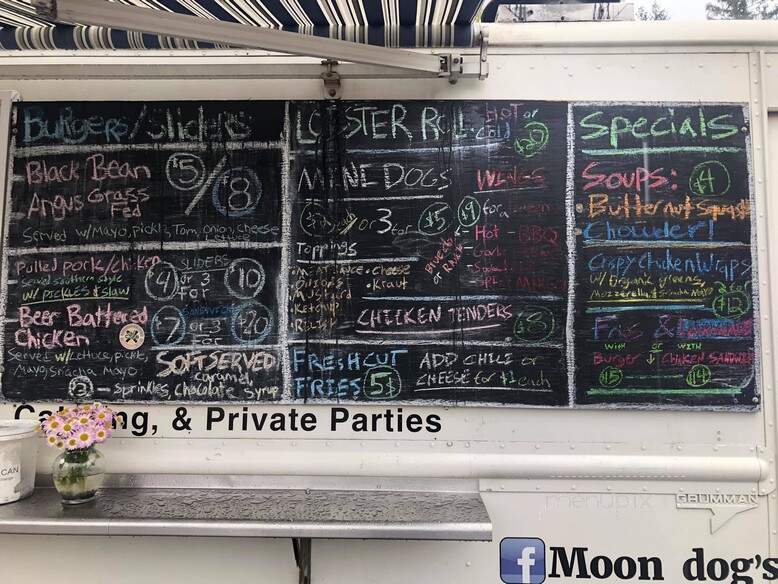 Burgers/Sliders
Black Bean $5/
Angus Grass Fed 8
Served w/Mayo, pickle, Tom, onion, cheese
Lettuce
Pulled pork/chicken SLIDERS
served southern style
w/ PICKLES & slaw
4 or 3 for 10
Beer Battered
Chicken
7 or 3 for 20
Served w/Lettuce, pickle,
Mayo, Sriracha Mayo
SOFT SERVED
Caramel,
3 - Sprinkles, Chocolate Syrup
LOBSTER ROLL HOT or
Cold
MAINE DOGS
or 3 for $5
Toppings
Cheese
Onions
Kraut
Mustard
Ketchup
Relish
WINGS
$9 for a
Hot - BBQ
CHICKEN TENDERS $8
FRESH CUT
FRIES 5$
ADD CHILI or
CHEESE for $1 each
Specials
Soups: $4
Butternut Squash
Chowder!
Crispy Chicken Wraps
w/ organic greens,
Mozzerella, & Sriracha Mayo
$12
Fries &
with or with
Burger ↓ Chicken SANDWICH
$15 $14
ng, & Private Parties
CAN
menupix
GRUMMAN
f Moon dog's